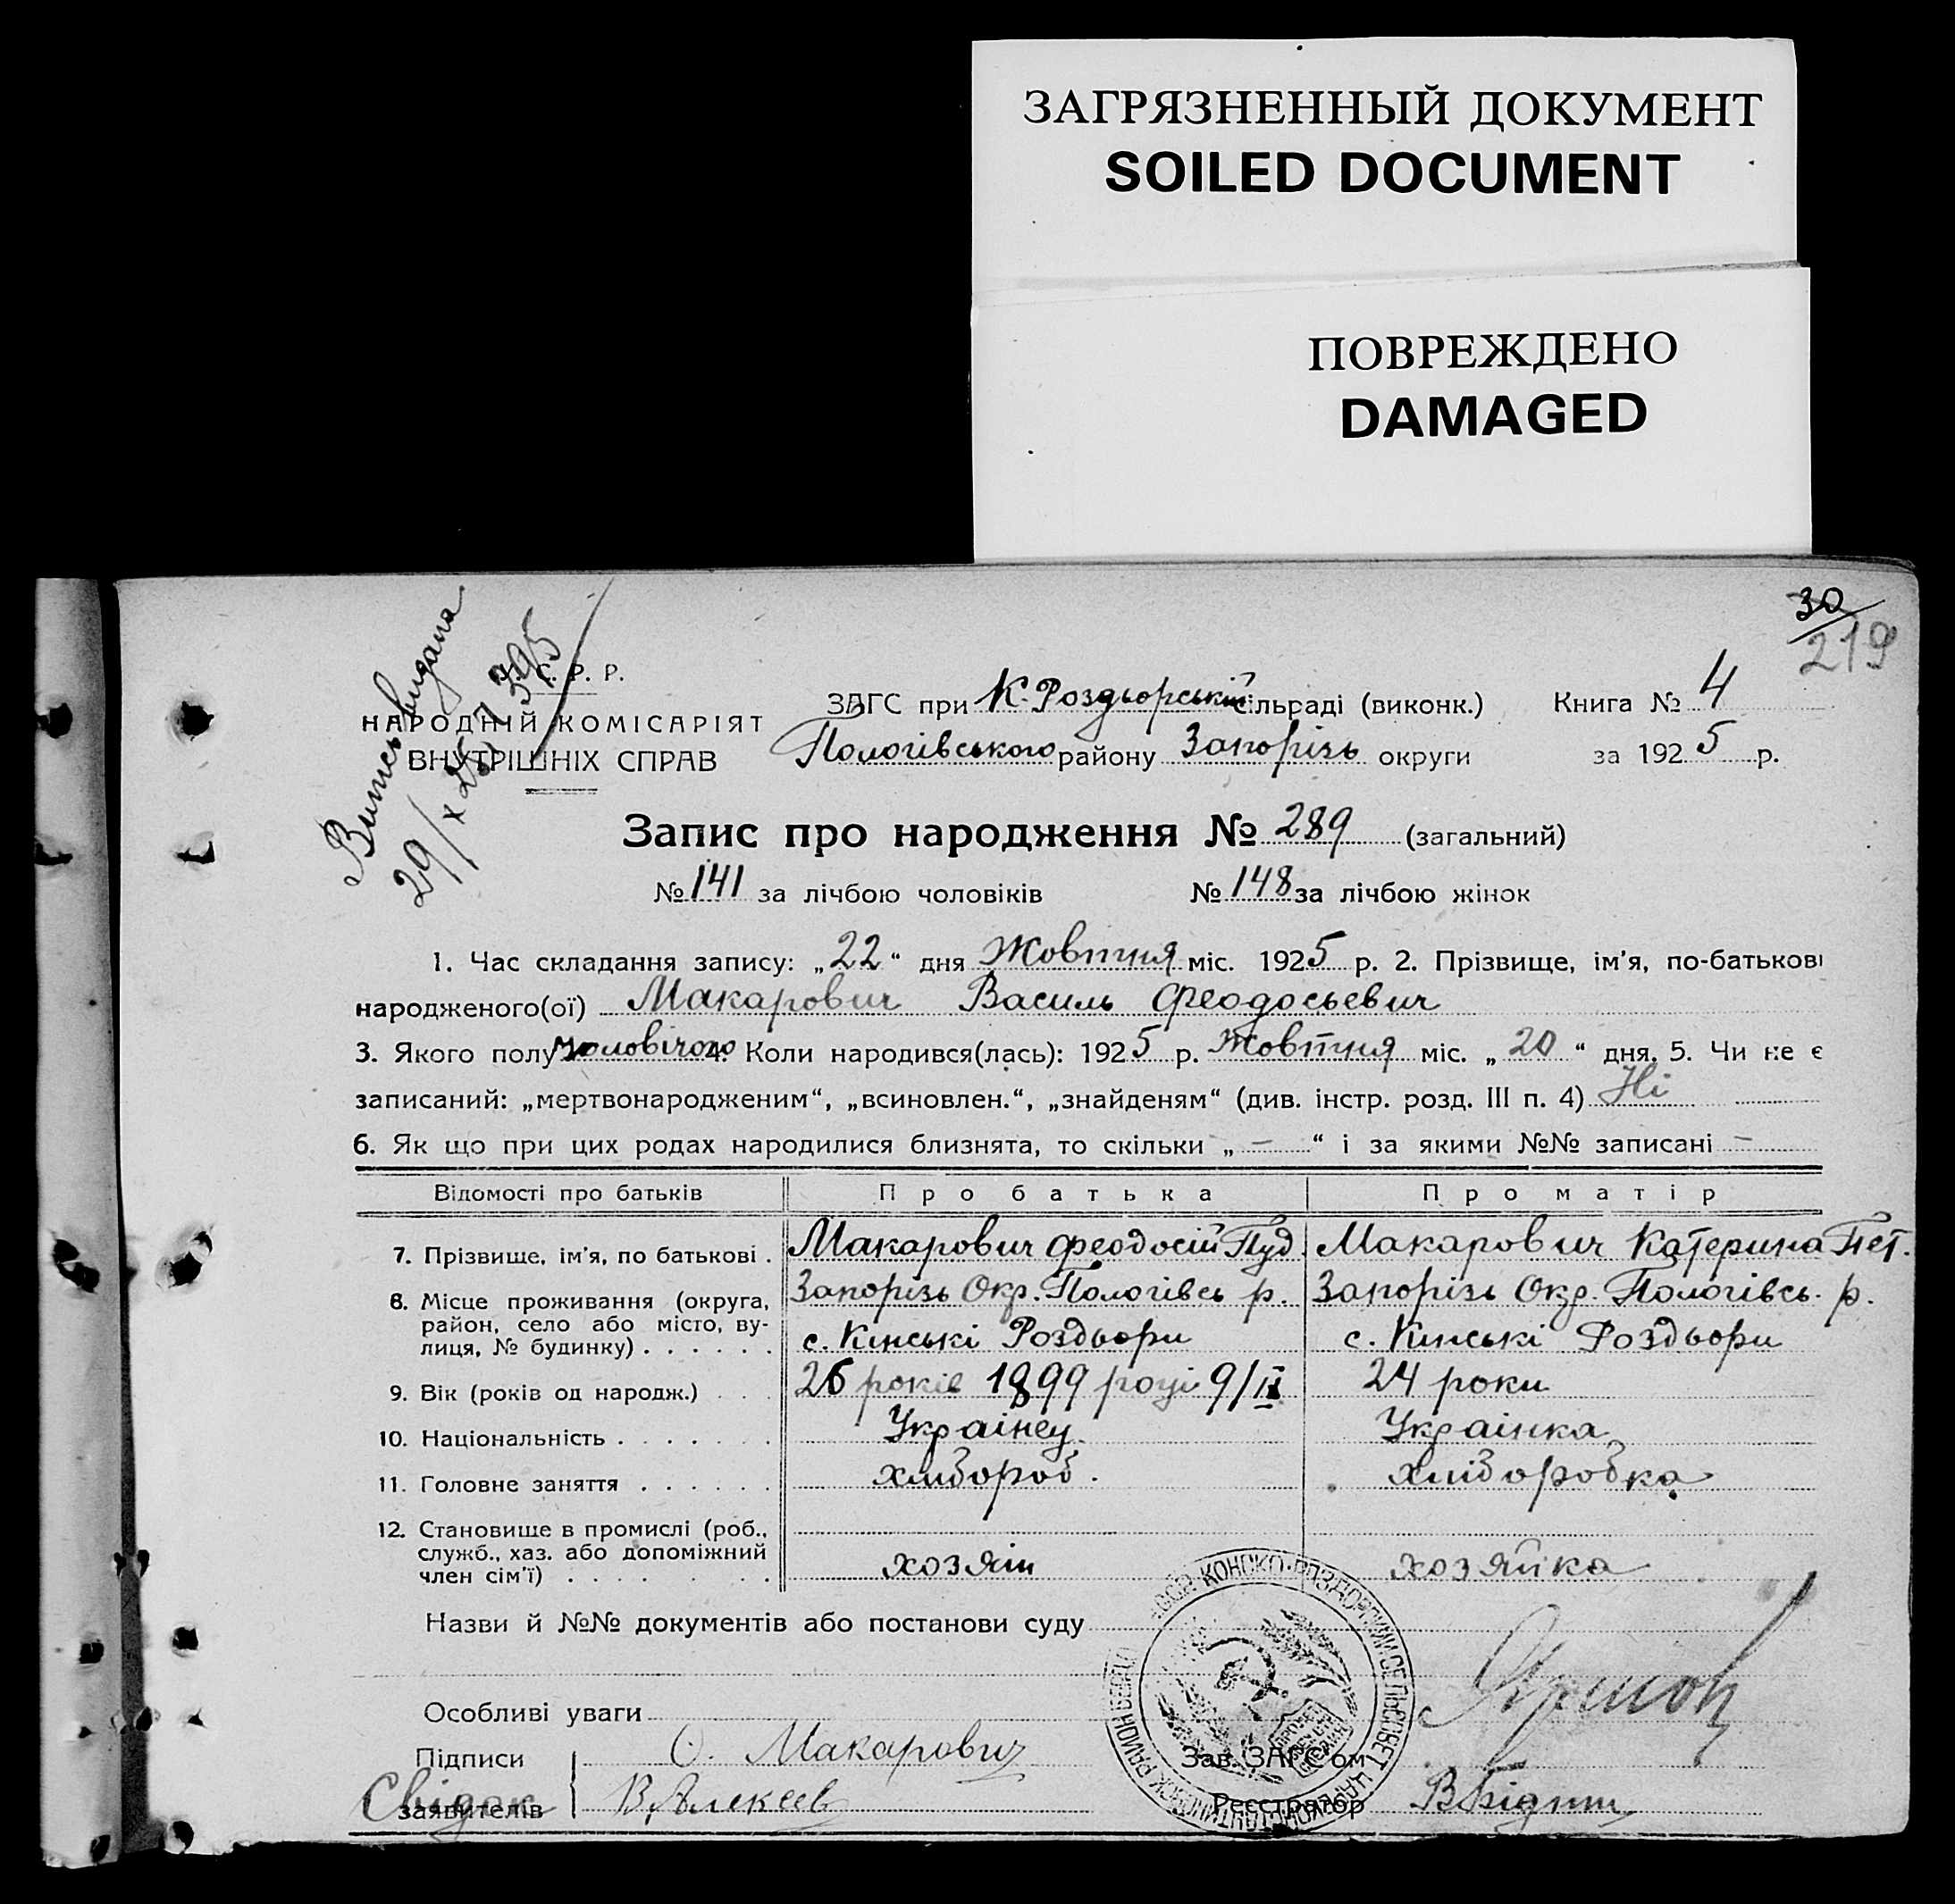 ЗАГРЯЗНЕННЫЙ ДОКУМЕНТ
SOILED DOCUMENT
ПОВРЕЖДЕНО
DAMAGED
30
219
Випись видана
29/X 25 7395
У. С. Р. Р.
НАРОДНІЙ КОМІСАРІЯТ
ВНУТРІШНІХ СПРАВ
ЗАГС при К. Роздьорській сільраді (виконк.) Книга № 4
Пологівського району Запорізь округи за 1925 р.
Запис про народження № 289 (загальний)
№ 141 за лічбою чоловіків № 148 за лічбою жінок
1. Час складання запису: „22“ дня Жовтня міс. 1925 р. 2. Прізвище, ім’я, по-батькові
народженого(ої) Макарович Василь Феодосьевич
3. Якого полу чоловічого 4. Коли народився(лась): 1925 р. Жовтня міс. „20“ дня. 5. Чи не є
записаний: „мертвонародженим“, „всиновлен.“, „знайденям“ (див. інстр. розд. III п. 4) Ні
6. Як що при цих родах народилися близнята, то скільки „—“ і за якими №№ записані —
Відомості про батьків Про батька Про матір
7. Прізвище, ім’я, по батькові . Макарович Феодосій Пуд. Макарович Катерина Пет.
8. Місце проживання (округа, район, село або місто, ву-лиця, № будинку) . . . . . .
Запорізь Окр. Пологівсь р. Запорізь Окр. Пологівсь. р.
с. Кінські Роздьори с. Кінські Роздьори
9. Вік (років од народж.) . . . 26 років 1899 році 9/II 24 роки
10. Національність . . . . . . . Українец Українка
11. Головне заняття . . . . . . хлібороб. хліборобка
12. Становище в промислі (роб., служб., хаз. або допоміжний член сім’ї) . . . . . . . . .
хозяїн хозяйка
Назви й №№ документів або постанови суду
Особливі уваги
Підписи О. Макарович Зав. ЗАГС’ом
Свідок
заявителів В. Алексеев Реєстратор